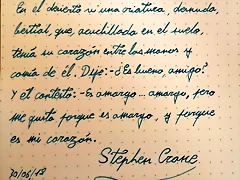 En el desierto vi una criatura, desnuda,
bestial, que, acuchillada en el suelo,
tenía su corazón entre las manos y
comía de él. Dije: -¿Es bueno, amigo?
Y él contestó: -Es amargo... amargo, pero
me gusta porque es amargo, y porque
es mi corazón.
Stephen Crane.